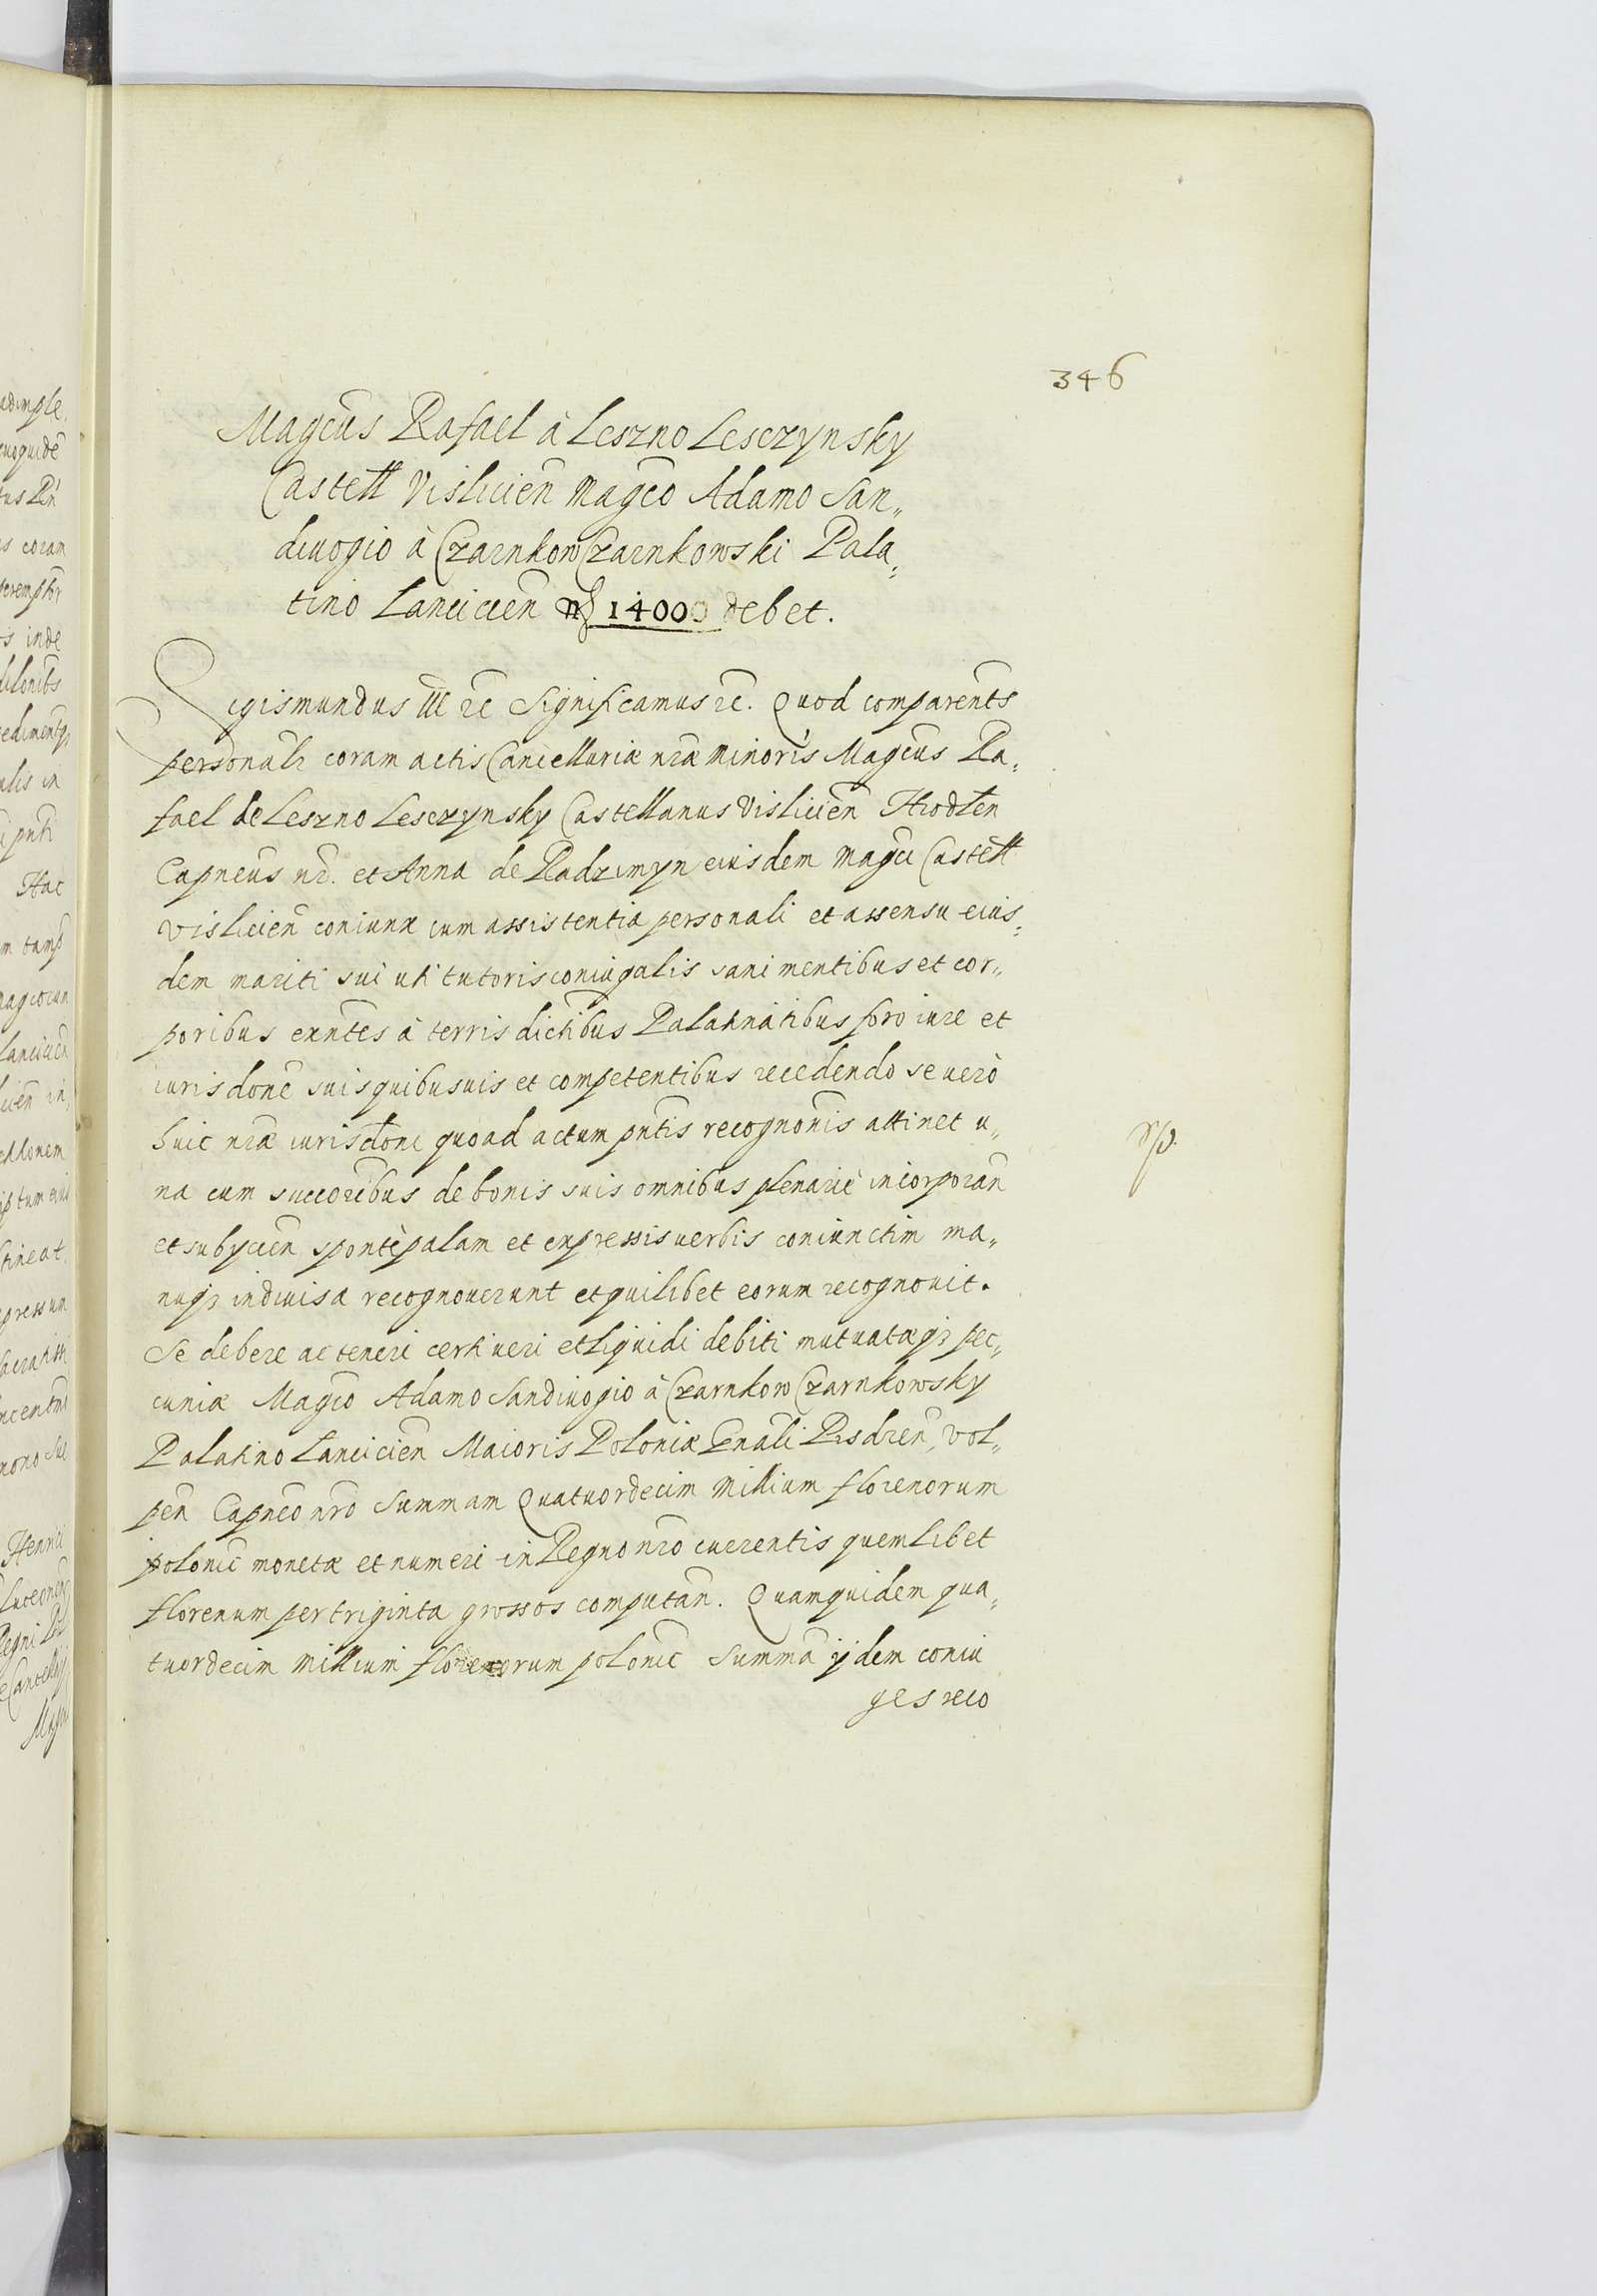 346
Magcūs Rafael à Leszno Lesczynsky
Castell Vislicien̄ Magc̄o Adamo San„
diuogio à Czarnkow Czarnkowski Pala„
tino Lancicien̄ 14000 debet.
Sigismundus III ꝛc Significamus ꝛc. Quod comparentes
personalr coram actis Cancellariæ nr̄æ minoris Magcūs Ra„
fael de Leszno Lesczynsky Castellanus Vislicien̄ Hrodlen
Capneus nr̄. et Anna de Radzimyn eiusdem Magci Castell
Vislicien̄ coniunx cum assistentia personali et assensu eius„
dem mariti sui uti tutoris coniugalis sani mentibus et cor„
poribus exn̄tes à terris dictibus Palatinatibus foro iure et
iurisdone suis quibusuis et competentibus recedendo se uerò
huic nr̄æ iurisdone quoad actum pn̄tis recognonis attinet u„
na cum succoribus de bonis suis omnibus plenariè incorporan̄
et subycien̄ spontè palam et expressis uerbis coniunctim ma„
nuqꝫ indiuisa recognouerunt et quilibet eorum recognouit.
Se debere ac teneri certi ueri et liquidi debiti mutuatæqꝫ pec„
cuniæ Magc̄o Adamo Sandiuogio à Czarnkow Czarnkowsky
Palatino Lancicien̄ Maioris Poloniæ Gn̄ali Pisdren̄, Vol„
pen̄ Capneo nr̄o Summam Quatuordecim Millium florenorum
polonic̄ monetæ et numeri in Regno nr̄o currentis quemlibet
florenum per triginta grossos computan̄. Quamquidem qua„
tuordecim Millium florenorum polonic̄ Summā ijdem coniu
ges reco